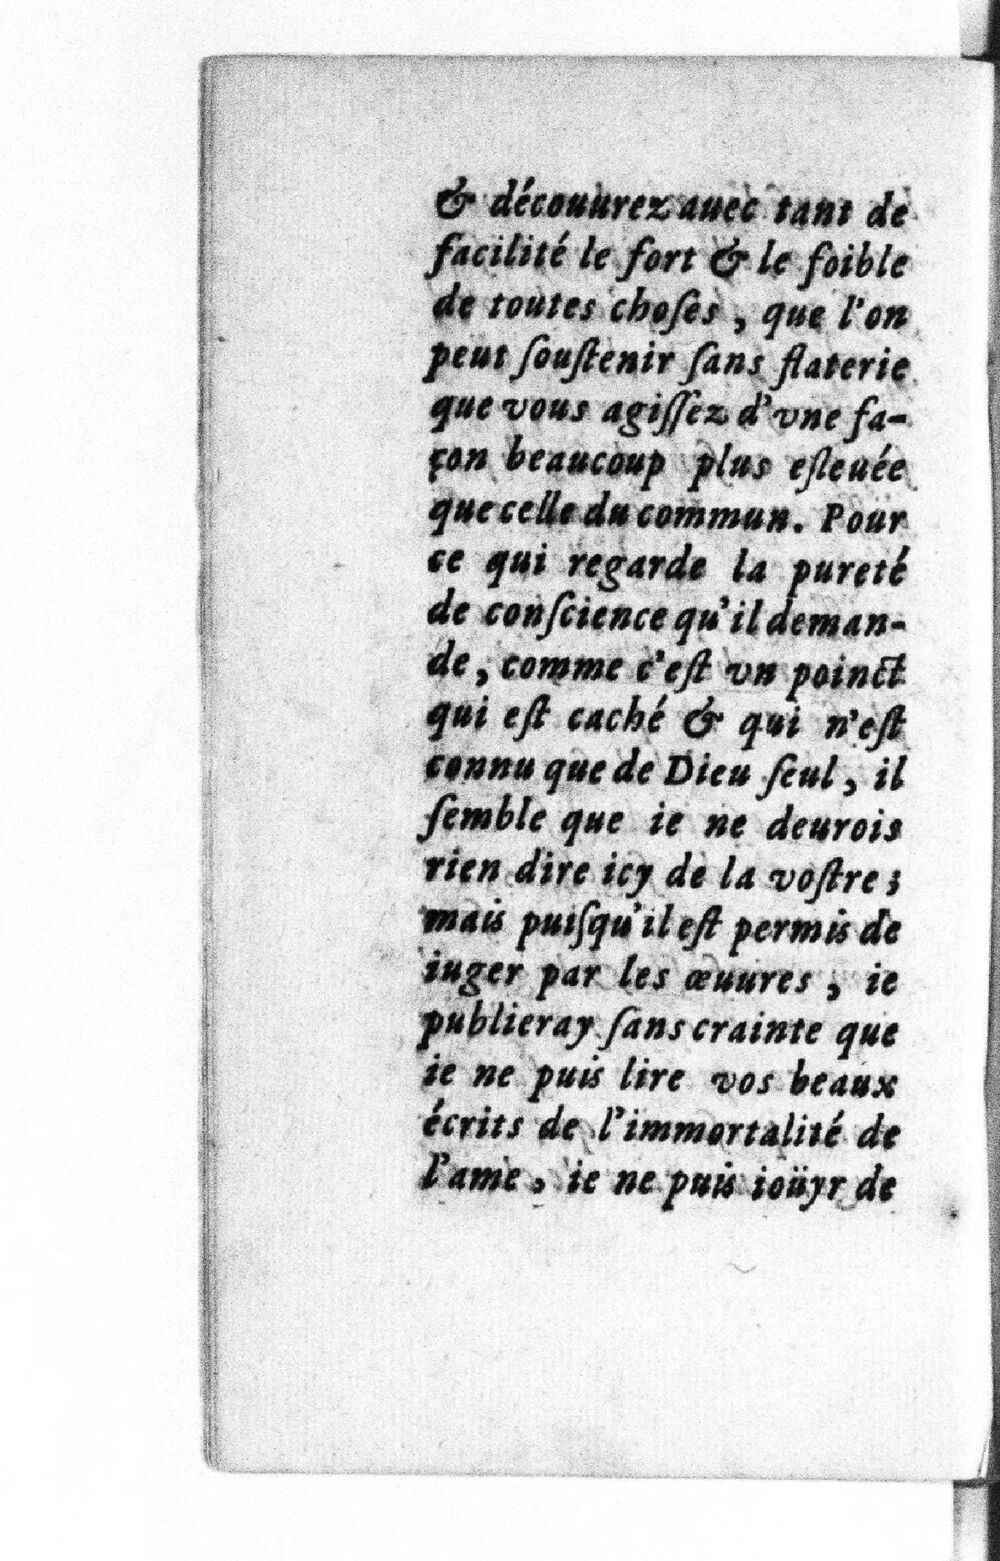 & découurez auec tant de
facilité le fort & le foible
de toutes choſes, que l'on
peut ſouſtenir ſans flaterie
que vous agiſſez d'vne fa-
çon beaucoup plus eſleuée
que celle du commun. Pour
ce qui regarde la pureté
de conſcience qu'il deman-
de, comme c'eſt vn poinct
qui eſt caché & qui n'eſt
connu que de Dieu ſeul, il
ſemble que ie ne deurois
rien dire icy de la voſtre;
mais puiſqu'il eſt permis de
iuger par les œuures, ie
publieray ſans crainte que
ie ne puis lire vos beaux
écrits de l'immortalité de
l'ame, ie ne puis ioüyr de